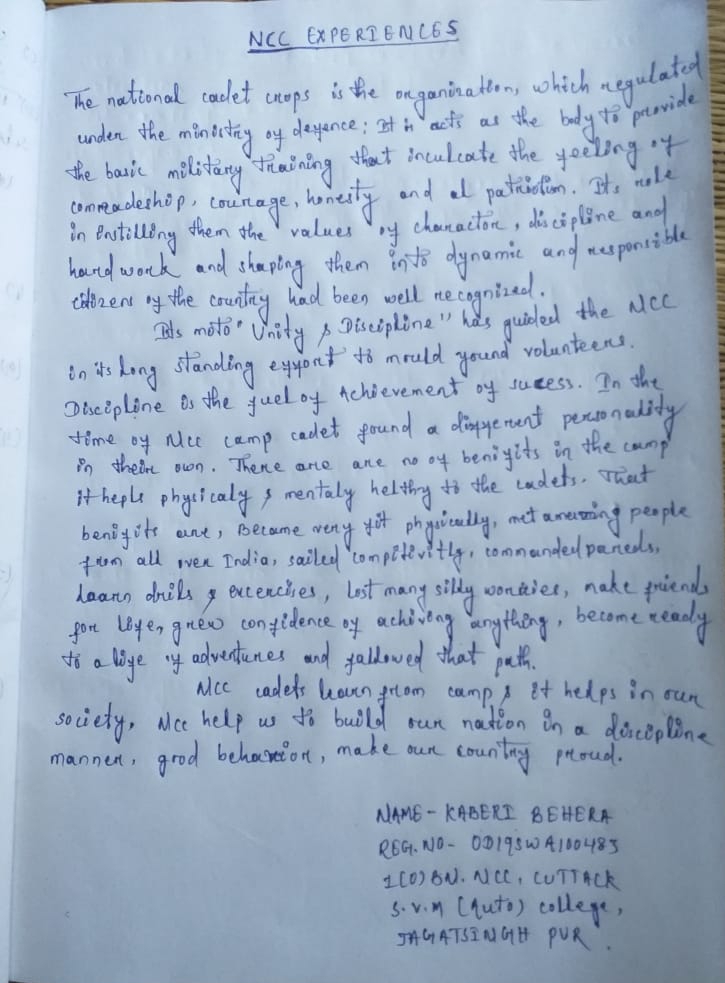 NCC EXPERIENCES
The national cadet crops is the organization, which regulated
under the ministry of defence; It is acts as the body to provide
the basic military training that inculcate the feeling of
comreadeship, courage, honesty and al patriotism. Its role
in Enstilling them the values of charactor, discipline and
hard work and shaping them into dynamic and responsible
citizens of the country had been well recognized.
Its moto "Unity & Discipline" has guided the NCC
in its long standing effort to mould yound volunteers.
Discipline is the fuel of Achievement of sucess. In the
time of NCC camp cadet found a different personality
in their own. There are are no of benifits in the camp
it hepls physicaly & mentaly helthry to the cadets. That
benifits are, Became very fit physically, met amezing people
from all over India, sailed compitivitly, commanded pareds,
Laarn drils & excencises, Lost many silly worries, make friends
for life, grew confidence of achiving anything, become ready
to a life of adventures and fallowed that path.
NCC cadets learn from camp & it helps in our
society, NCC help us to build our nation in a discipline
manner, good behavior, make our country proud.
NAME - KABERI BEHERA
REG. NO - OD19SWA100483
1(O) BN. NCC, CUTTACK
S.V.M (Auto) college,
JAGATSINGH PUR.